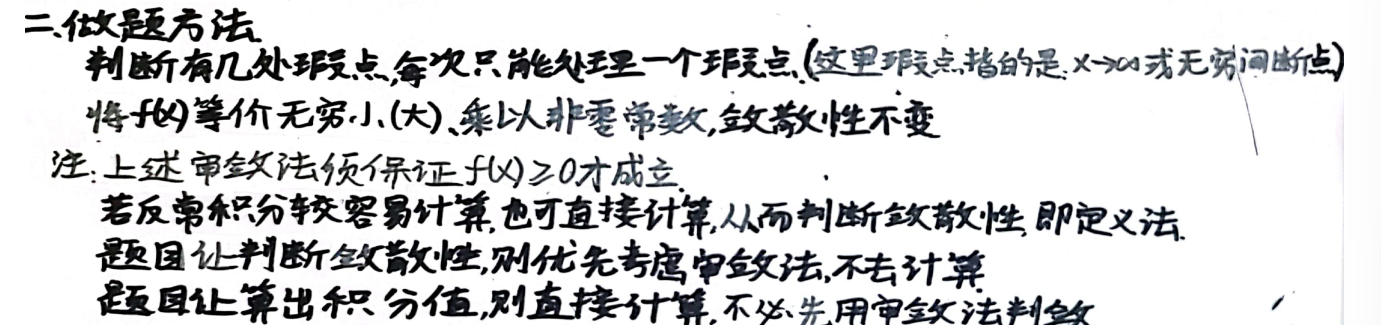 二、做题方法.
判断有几处瑕点,每次只能处理一个瑕点.(这里瑕点指的是x→∞或无穷间断点)
将f(x)等价无穷小(大)、乘以非零常数,敛散性不变
注:上述审敛法须保证f(x)≥0才成立.
若反常积分较容易计算,也可直接计算,从而判断敛散性,即定义法.
题目让判断敛散性,则优先考虑审敛法,不去计算
题目让算出积分值,则直接计算,不必先用审敛法判敛